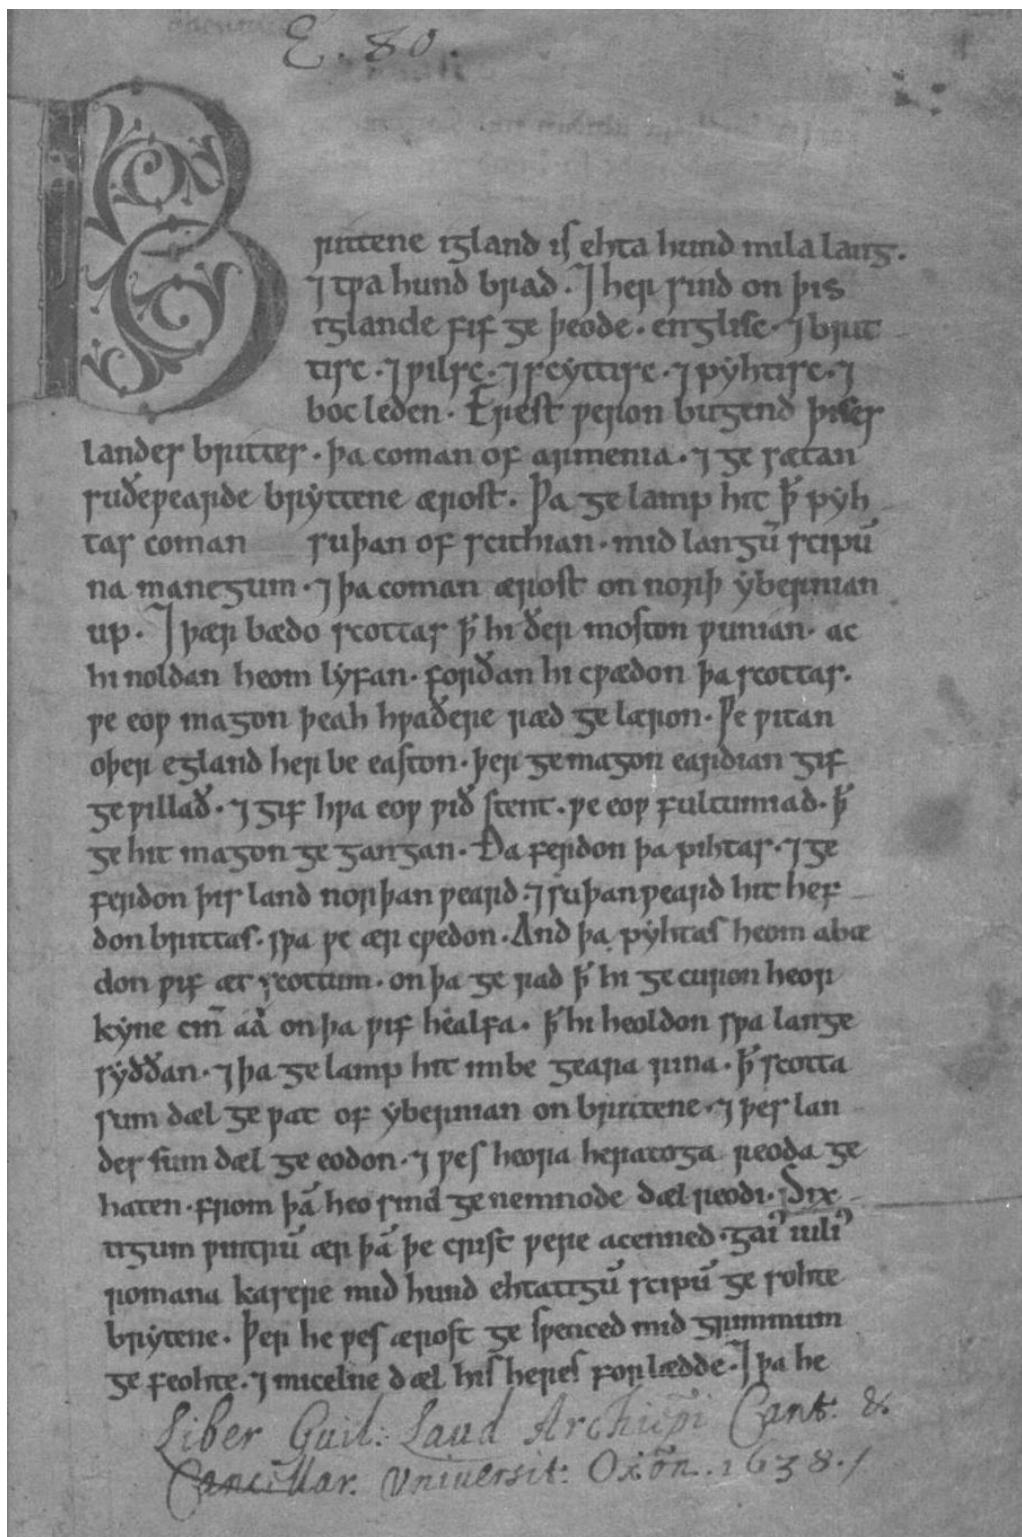 E. 80.
Brittene igland is ehta hund mila lang.
⁊ tƿa hund brad. ⁊ her sind on þis
iglande fif ge þeode. englisc. ⁊ brit
tisc. ⁊ ƿilsc. ⁊ scyttisc. ⁊ pyhtisc. ⁊
boc leden. Erest ƿeron bugend þises
landes brittes. þa coman of armenia. ⁊ ge sætan
suðeƿearde bryttene ærost. Þa ge lamp hit ꝥ pyh
tas coman suþan of scithian. mid langū scipū
na manegum. ⁊ þa coman ærost on norþ ybernian
up. ⁊ þær bædo scottas ꝥ hi ðer moston ƿunian. ac
hi noldan heom lyfan. forðan hi cƿædon þa scottas.
ƿe eoƿ magon þeah hƿaðere ræd ge læron. Ƿe ƿitan
oþer egland her be easton. þer ge magon eardian gif
ge ƿillað. ⁊ gif hƿa eoƿ ƿið stent. ƿe eoƿ fultumiad. ꝥ
ge hit magon ge gangan. Ða ferdon þa pihtas. ⁊ ge
ferdon þis land norþan ƿeard. ⁊ suþanƿeard hit hef
don brittas. sƿa ƿe ær cƿedon. And þa pyhtas heom abæ
don ƿif æt scottum. on þa ge rad ꝥ hi ge curon heor
kyne cin̄ aa on þa ƿif healfa. ꝥ hi heoldon sƿa lange
syððan. ⁊ þa ge lamp hit imbe geara rina. ꝥ scotta
sum dæl ge ƿat of ybernian on brittene. ⁊ þes lan
des sum dæl ge eodon. ⁊ ƿes heora heratoga reoda ge
haten. from þā heo sind ge nemnode dæl reodi. Six
tigum ƿintrū ær þā þe crist ƿere acenned. gaiꝰ iuliꝰ
romana kasere mid hund ehtatigū scipū ge sohte
brytene. Þer he ƿes ærost ge sƿenced mid grimmum
ge feohte. ⁊ micelne dæl his heres forlædde. ⁊ þa he
Liber Guil: Laud Archiepi Cant: &
Cancillar. Vniuersit: Oxōn. 1638./